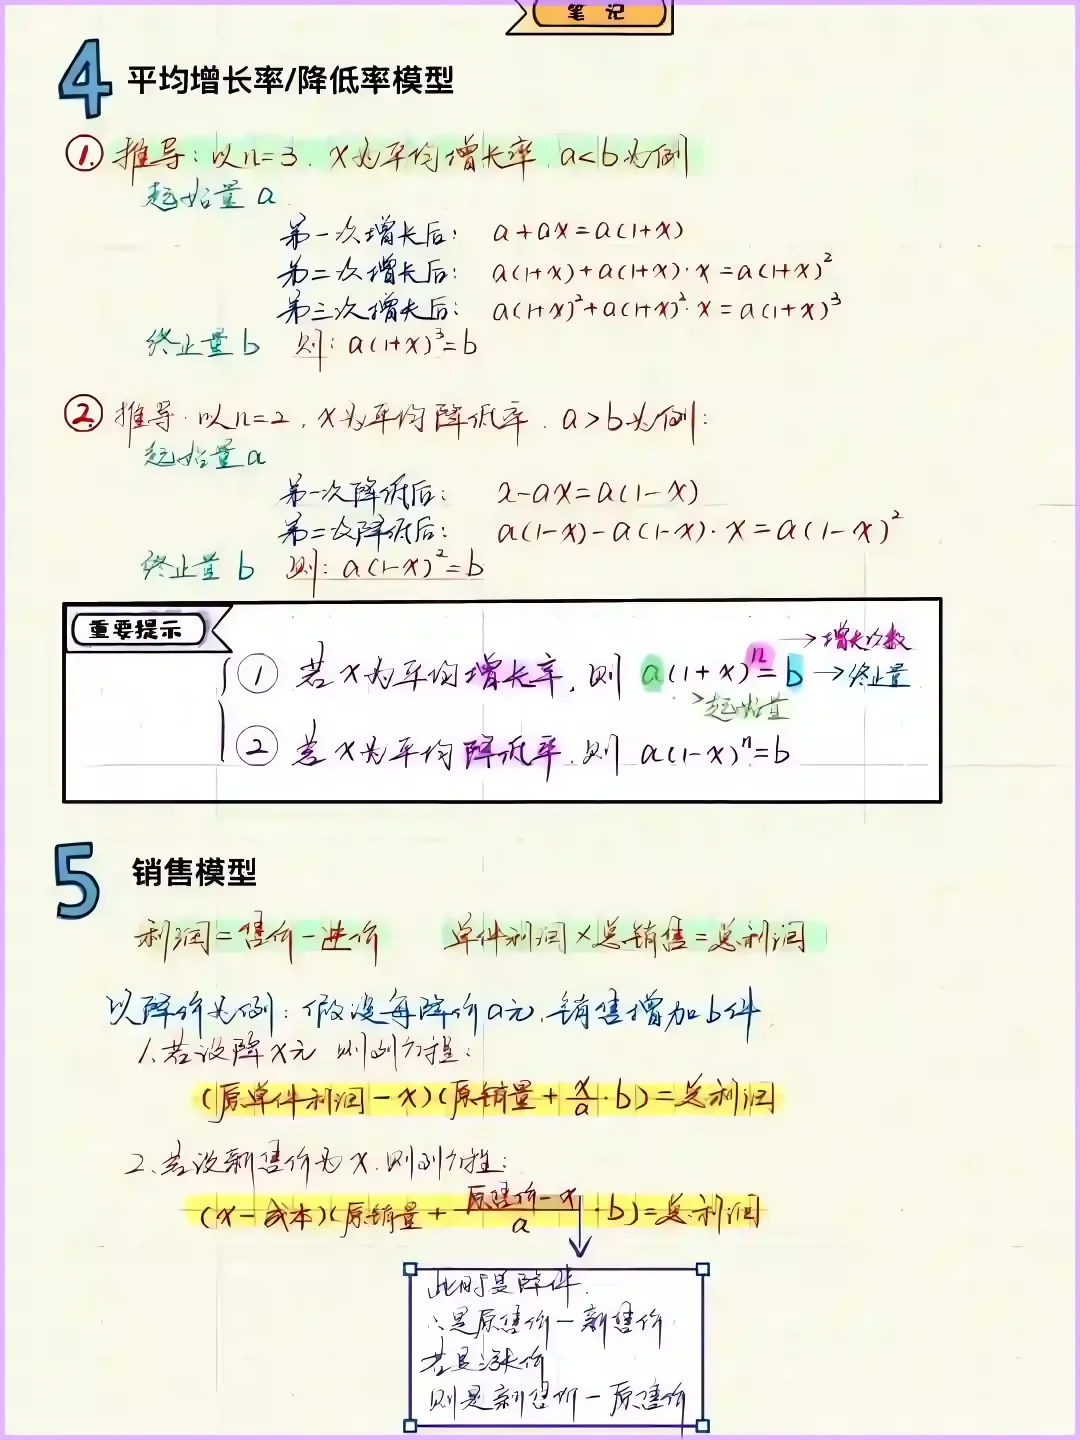 笔记
4 平均增长率/降低率模型
① 推导：以n=3，x为平均增长率，a<b为例
起始量 a
第一次增长后： a+ax=a(1+x)
第二次增长后： a(1+x)+a(1+x)·x=a(1+x)²
第三次增长后： a(1+x)²+a(1+x)²·x=a(1+x)³
终止量 b 则：a(1+x)³=b
② 推导·以n=2，x为平均降低率，a>b为例：
起始量 a
第一次降低后： x-ax=a(1-x)
第二次降低后： a(1-x)-a(1-x)·x=a(1-x)²
终止量 b 则：a(1-x)²=b
重要提示
→增长次数
① 若x为平均增长率，则 a(1+x)ⁿ=b →终止量
→起始量
② 若x为平均降低率，则 a(1-x)ⁿ=b
5 销售模型
利润=售价-进价 单件利润×总销售=总利润
以降价为例：假设每降价a元，销售增加b件
1、若设降x元 则列方程：
(原单件利润-x)(原销量+x/a·b)=总利润
2、若设新售价为x，则列方程：
(x-成本)(原销量+原售价-x/a·b)=总利润
此时是降件，
∴是原售价-新售价
若是涨价
则是新售价-原售价